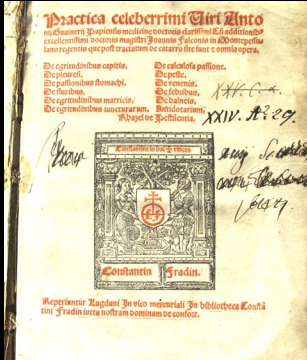 Practica celeberrimi Viri Anto
nij Guainerij Papiensis medicine doctoris clarissimi Cū additionib⁹
excellentissimi doctoris magistri Joannis Falconis in Montepessu
lano regentis que post tractatum de catarro site sunt τ omnia opera.
De egritudinibus capitis.
De pleuresi.
De passionibus stomachi.
De fluxibus.
De egritudinibus matricis.
De egritudinibus iuncturarum.
De calculosa passione.
De peste.
De venenis.
De febribus.
De balneis.
Antidotarium.
Rhazel de Pestilentia.
XXIV. A. 29.
Constantin
Fradin.
Reperiuntur Lugduni In vico mercuriali In bibliotheca Constā
tini Fradin iuxta nostram dominam de confort.